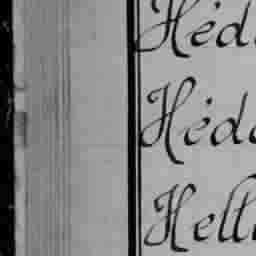 Héd
Héd
Hell